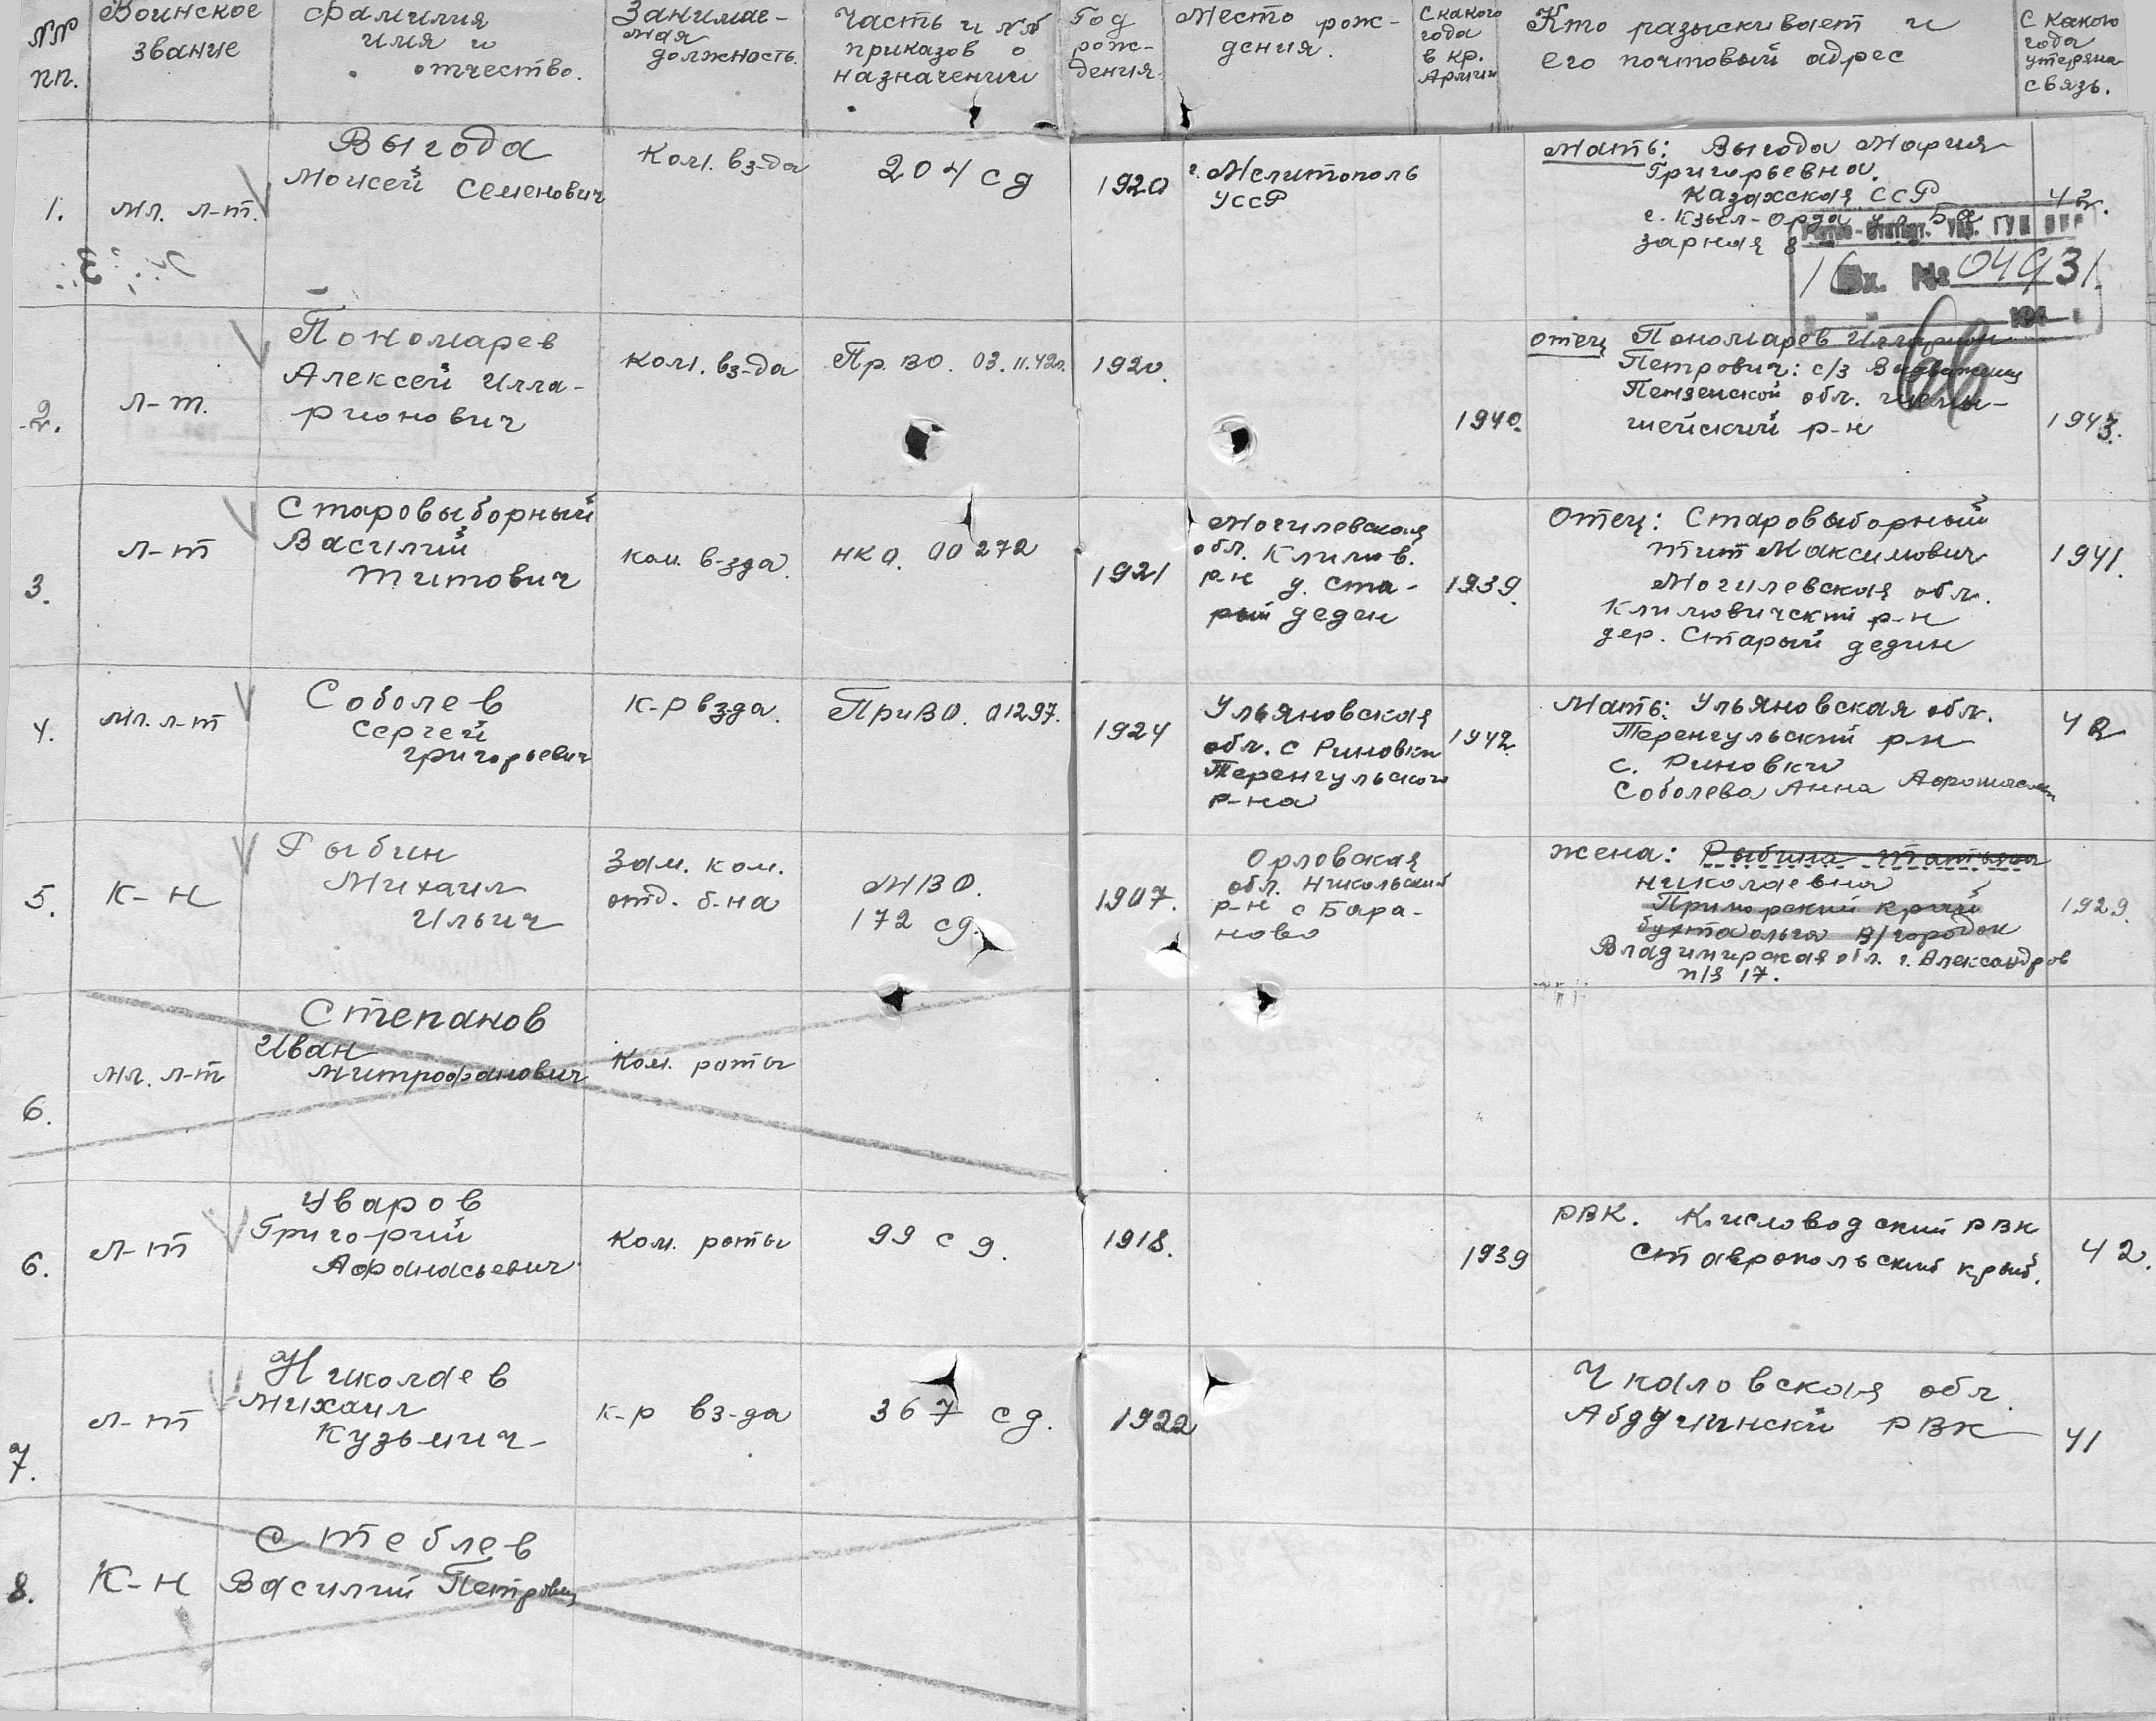 №№ пп.
Воинское звание
Фамилия имя и отчество.
Занимае-мая должность.
Часть и №№ приказов о назначении
Год рож-дения
Место рож-дения.
С какого года в кр. Армии
Кто разыскивает и его почтовый адрес
С какого года утеряна связь.
1.
мл. л-т.
Выгода
Моисей Семенович
Ком. вз-да
204 сд
1920
г. Мелитополь
УССР
Мать: Выгода Мария
Григорьевна.
Казахская ССР
г. Кзыл-Орда ул. Ба
зарная 8
42г.
Вх. № 04931
194
2.
л-т.
Пономарев
Алексей Илла-
рионович
Ком. вз-да
Пр. ВО. 03. 11. 42г.
1920.
1940.
отец Пономарев Илларион
Петрович: с/з
Пензенской обл.
шейский р-н
1943.
3.
л-т
Старовыборный
Василий
Титович
ком. в-зда.
НКО. 00272
1921
Могилевская
обл. Климов.
р-н д. Ста-
рый деден
1939.
Отец: Старовыборный
Тит Максимович
Могилевская обл.
Климовичский р-н
дер. Старый дедин
1941.
4.
мл. л-т
Соболев
Сергей
Григорьевич
к-р взда.
ПриВО. 01297.
1924
Ульяновская
обл. с Риновки
Теренгульского
р-на
1942.
Мать: Ульяновская обл.
Теренгульский р-н
с. Риновки
Соболева Анна
42
5.
к-н
Рыбин
Михаил
Ильич
Зам. ком.
отд. б-на
МВО.
172 сд.
1907.
Орловская
обл. Никольский
р-н с Бара-
ново
жена: Рыбина Татьяна
Николаевна
Приморский край
бухта ольга в/городок
Владимирская обл. г. Александров
п/я 17.
1929.
6.
мл. л-т
Степанов
Иван
Митрофанович
Ком. роты
6.
л-т
Уваров
Григорий
Афанасьевич
Ком. роты
99 сд.
1918.
1939
РВК. Кисловодский РВК
Ставропольский край.
42.
7.
л-т
Николаев
Михаил
Кузьмич
к-р вз-да
367 сд.
1922
Чкаловская обл.
Абдулински РВК
41
8.
К-н
Стеблев
Василий Петрович